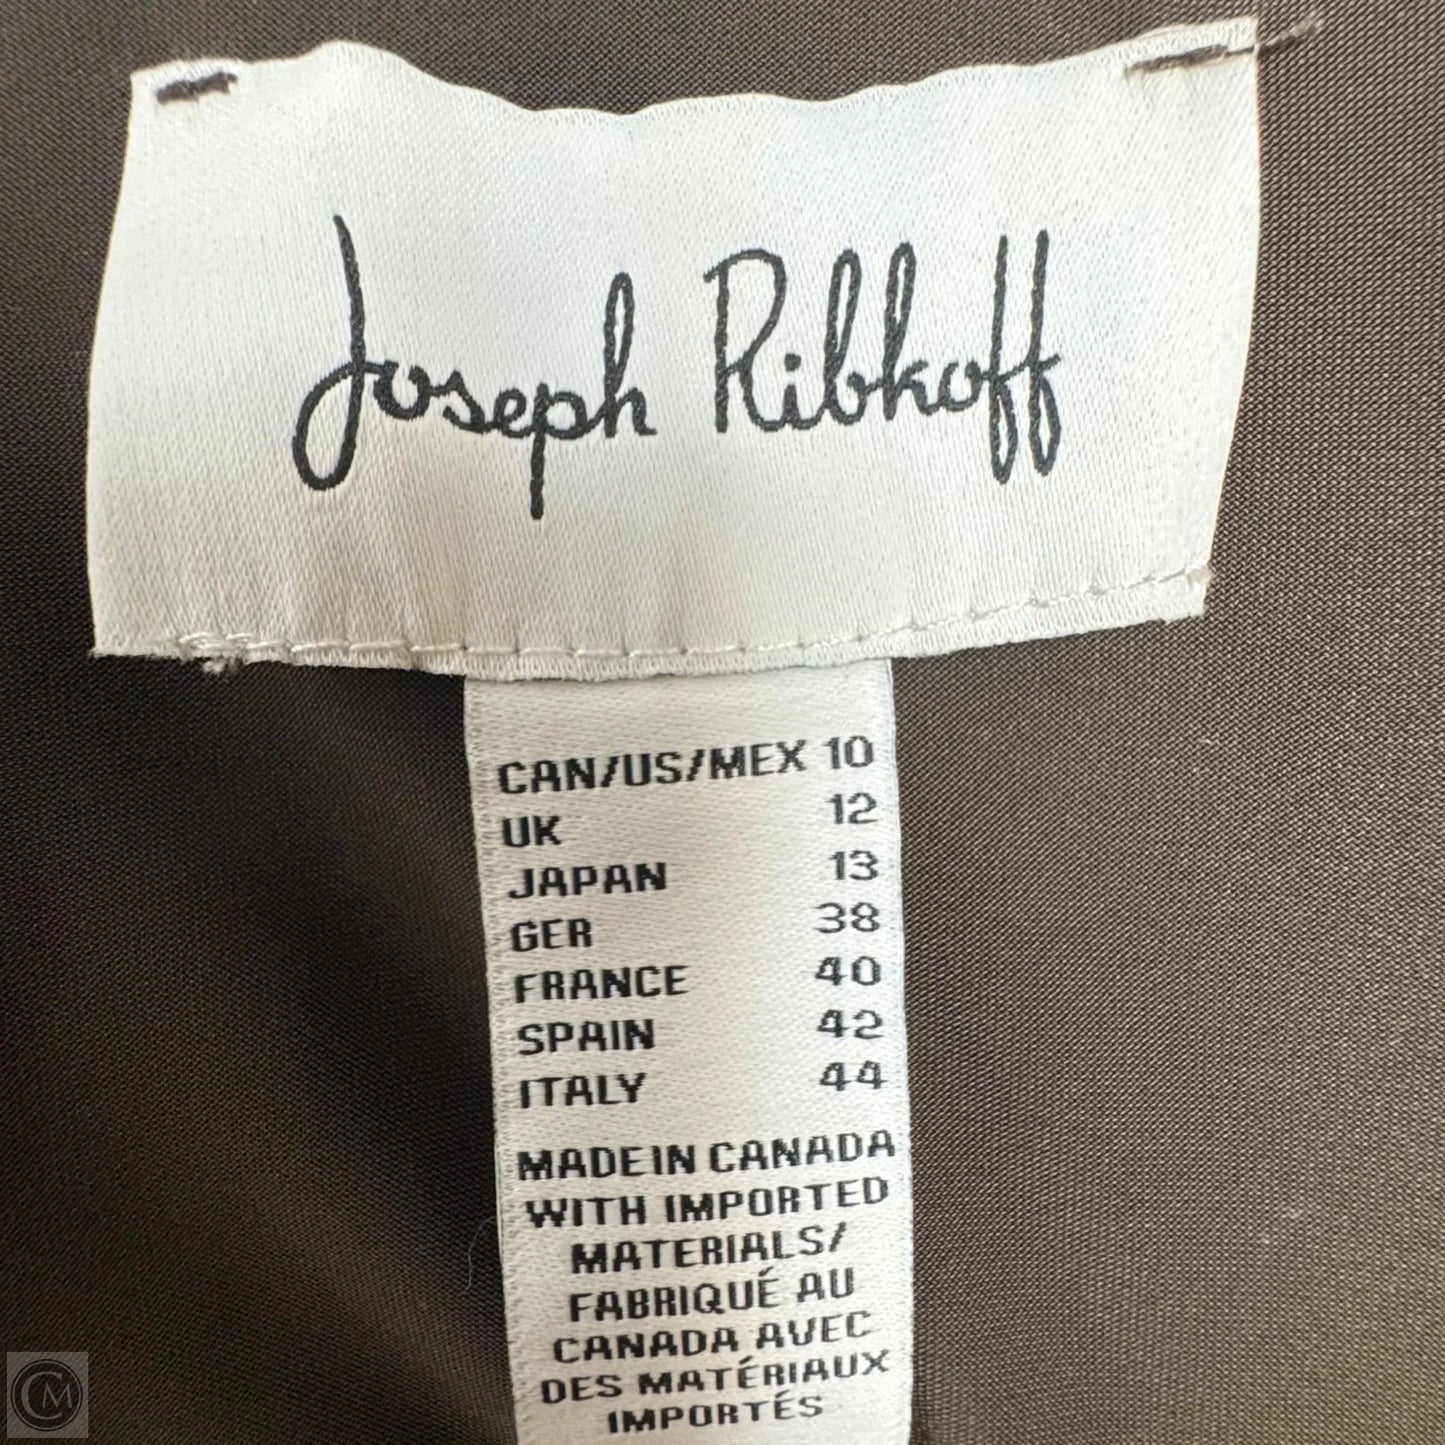 Joseph Ribkoff
CAN/US/MEX 10
UK 12
JAPAN 13
GER 38
FRANCE 40
SPAIN 42
ITALY 44
MADE IN CANADA
WITH IMPORTED
MATERIALS/
FABRIQUÉ AU
CANADA AVEC
DES MATÉRIAUX
IMPORTÉS
CM